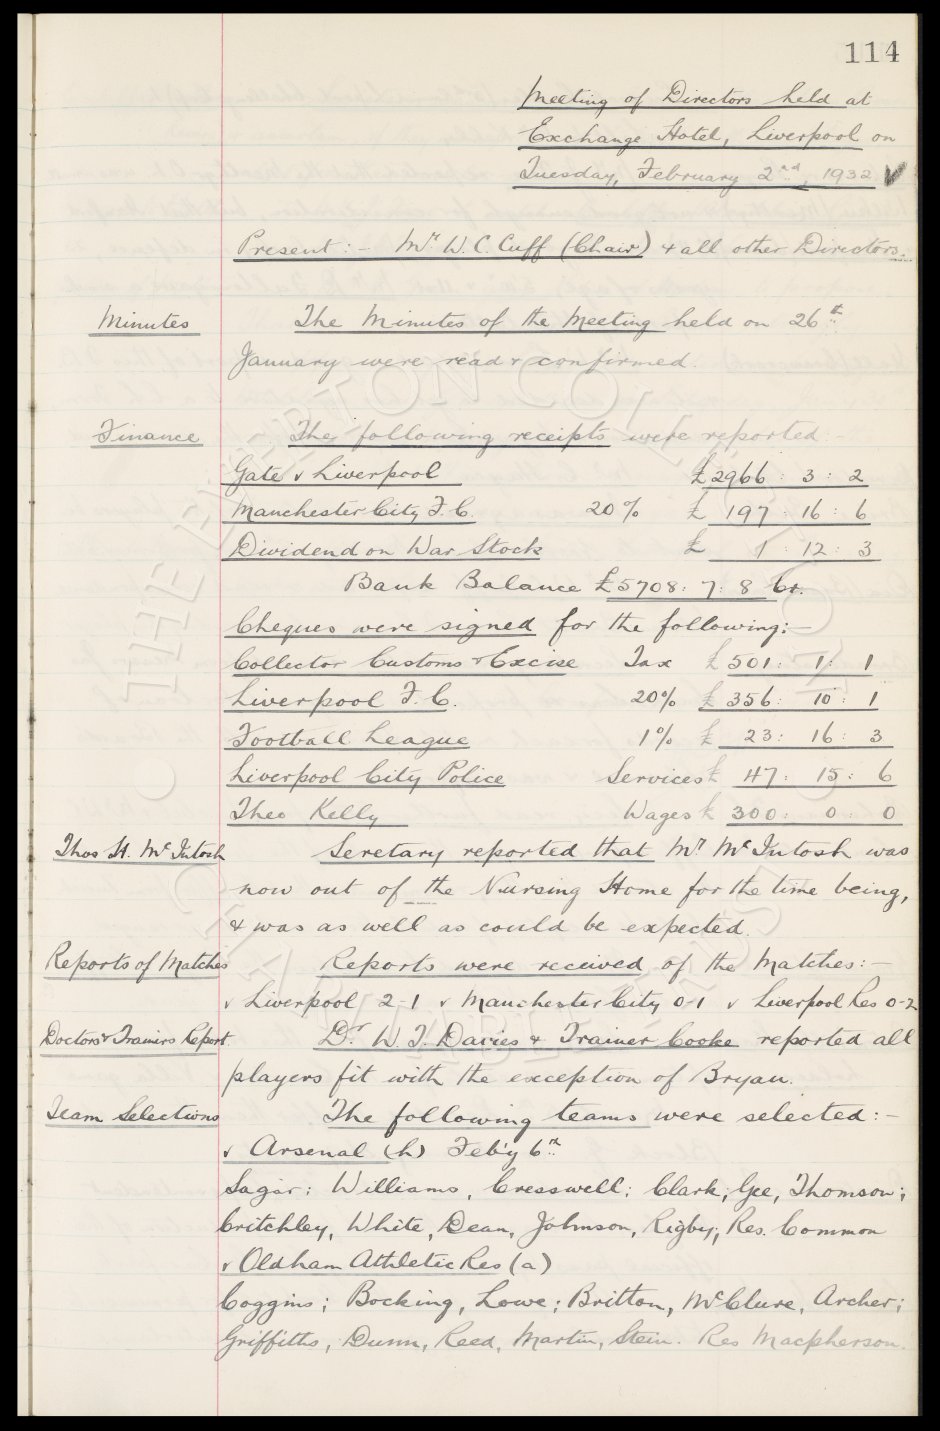 114
Meeting of Directors held at
Exchange Hotel, Liverpool on
Tuesday, February 2nd, 1932
Present:- Mr W. C. Cuff (Chair) & all other Directors.
Minutes The Minutes of the Meeting held on 26th
January were read & confirmed.
Finance The following receipts were reported:-
Gate v Liverpool £2966 : 3 : 2
Manchester City F.C. 20% £ 197 : 16 : 6
Dividend on War Stock £ 1 : 12 : 3
Bank Balance £5708 : 7 : 8 Cr.
Cheques were signed for the following:-
Collector Customs & Excise Tax £ 501 : 1 : 1
Liverpool F.C. 20% £ 356 : 10 : 1
Football League 1% £ 23 : 16 : 3
Liverpool City Police Services £ 47 : 15 : 6
Theo Kelly Wages £ 300 : 0 : 0
Thos H. McIntosh Seretary reported that Mr McIntosh was
now out of the Nursing Home for the time being,
& was as well as could be expected.
Reports of Matches Reports were received of the Matches:-
v Liverpool 2-1 v Manchester City 0-1 v Liverpool Res 0-2
Doctors & Trainers Report. Dr. W. J. Davies & Trainer Cooke reported all
players fit with the exception of Bryan.
Team Selections The following teams were selected:-
v Arsenal (h) Feb'y 6th
Sagar; Williams, Cresswell; Clark, Gee, Thomson;
Critchley, White, Dean, Johnson, Rigby; Res. Common
v Oldham Athletic Res (a)
Coggins; Bocking, Lowe; Britton, McClure, Archer;
Griffiths, Dunn, Reed, Martin, Stein. Res Macpherson.
THE EVERTON COLLECTION